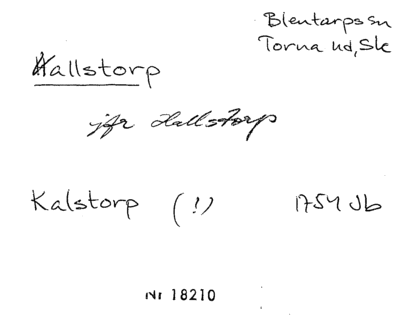 Blentarps sn
Torna hd, Sk
Hallstorp
jfr Hallstorp
Kalstorp (!) 1754 Jb
Nr 18210